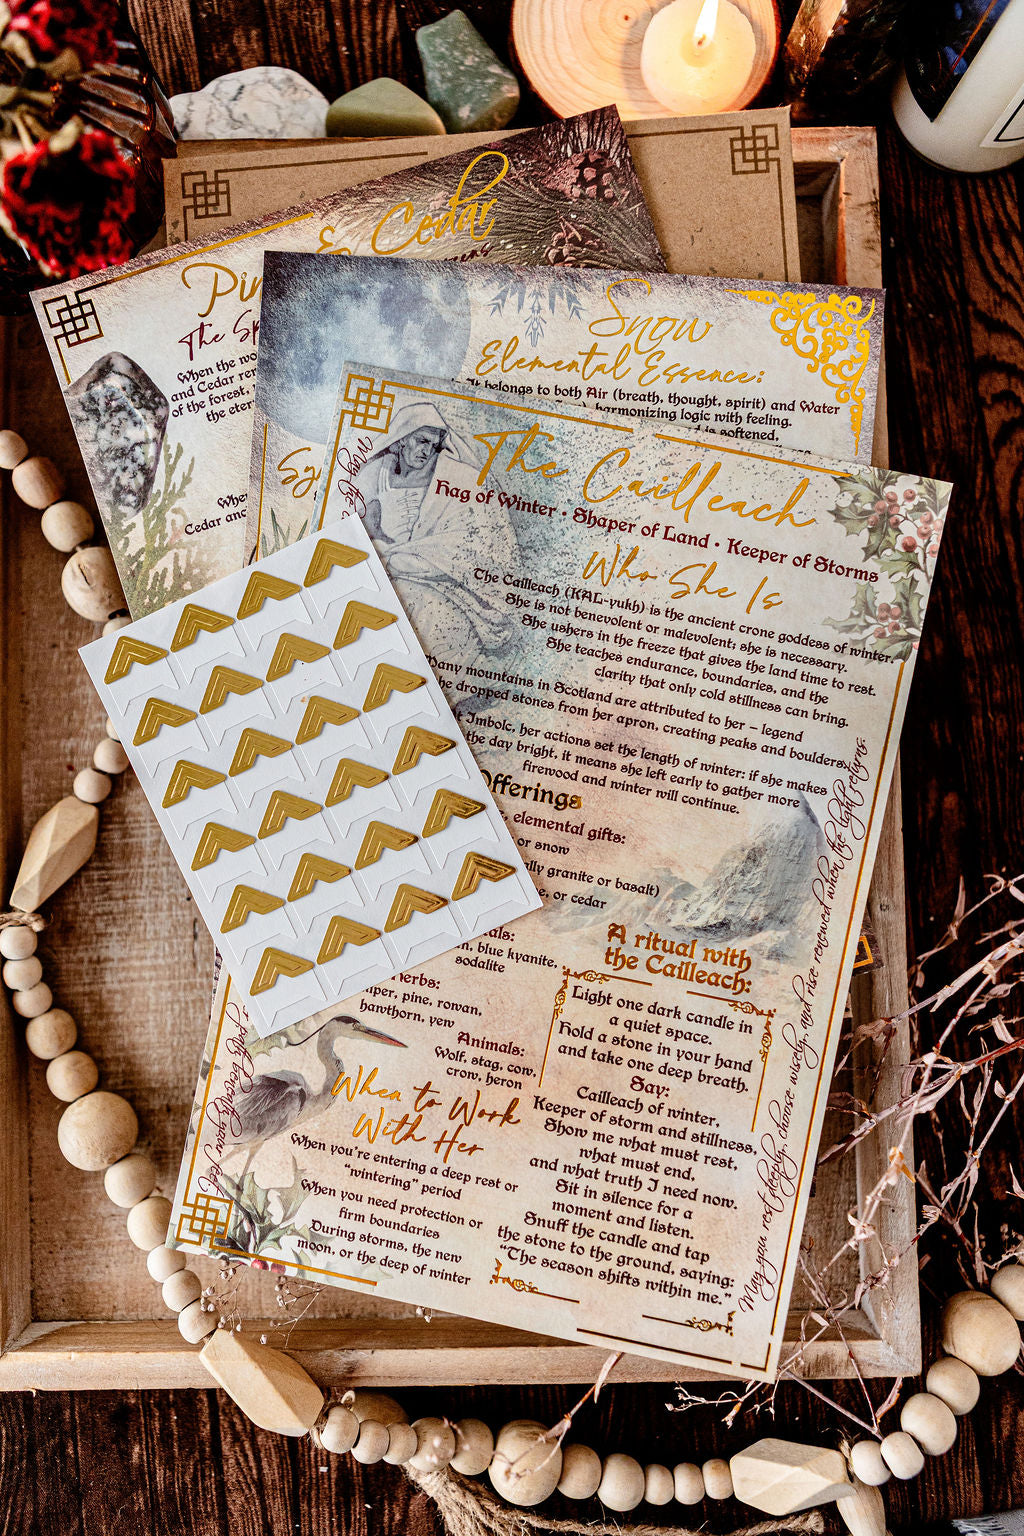 & Cedar
The Sp
When the wo
and Cedar rem
of the forest,
the eter
Whe
Cedar and
Snow
Elemental Essence:
It belongs to both Air (breath, thought, spirit) and Water
harmonizing logic with feeling.
is softened,
Sy
The Cailleach
Hag of Winter • Shaper of Land • Keeper of Storms
Who She Is
The Cailleach (KAL-yukh) is the ancient crone goddess of winter.
She is not benevolent or malevolent; she is necessary.
She ushers in the freeze that gives the land time to rest.
She teaches endurance, boundaries, and the
clarity that only cold stillness can bring.
Many mountains in Scotland are attributed to her – legend
he dropped stones from her apron, creating peaks and boulders.
t Imbolc, her actions set the length of winter: if she makes
the day bright, it means she left early to gather more
firewood and winter will continue.
Offerings
, elemental gifts:
or snow
ally granite or basalt)
e, or cedar
als:
n, blue kyanite,
sodalite
Herbs:
iper, pine, rowan,
hawthorn, yew
Animals:
Wolf, stag, cow,
crow, heron
When to Work
With Her
When you're entering a deep rest or
"wintering" period
When you need protection or
firm boundaries
During storms, the new
moon, or the deep of winter
A ritual with
the Cailleach:
Light one dark candle in
a quiet space.
Hold a stone in your hand
and take one deep breath.
Say:
Cailleach of winter,
Keeper of storm and stillness,
Show me what must rest,
what must end,
and what truth I need now.
Sit in silence for a
moment and listen.
Snuff the candle and tap
the stone to the ground, saying:
"The season shifts within me."
May you rest deeply, choose wisely, and rise renewed when the light returns.
May the
beneath your feet